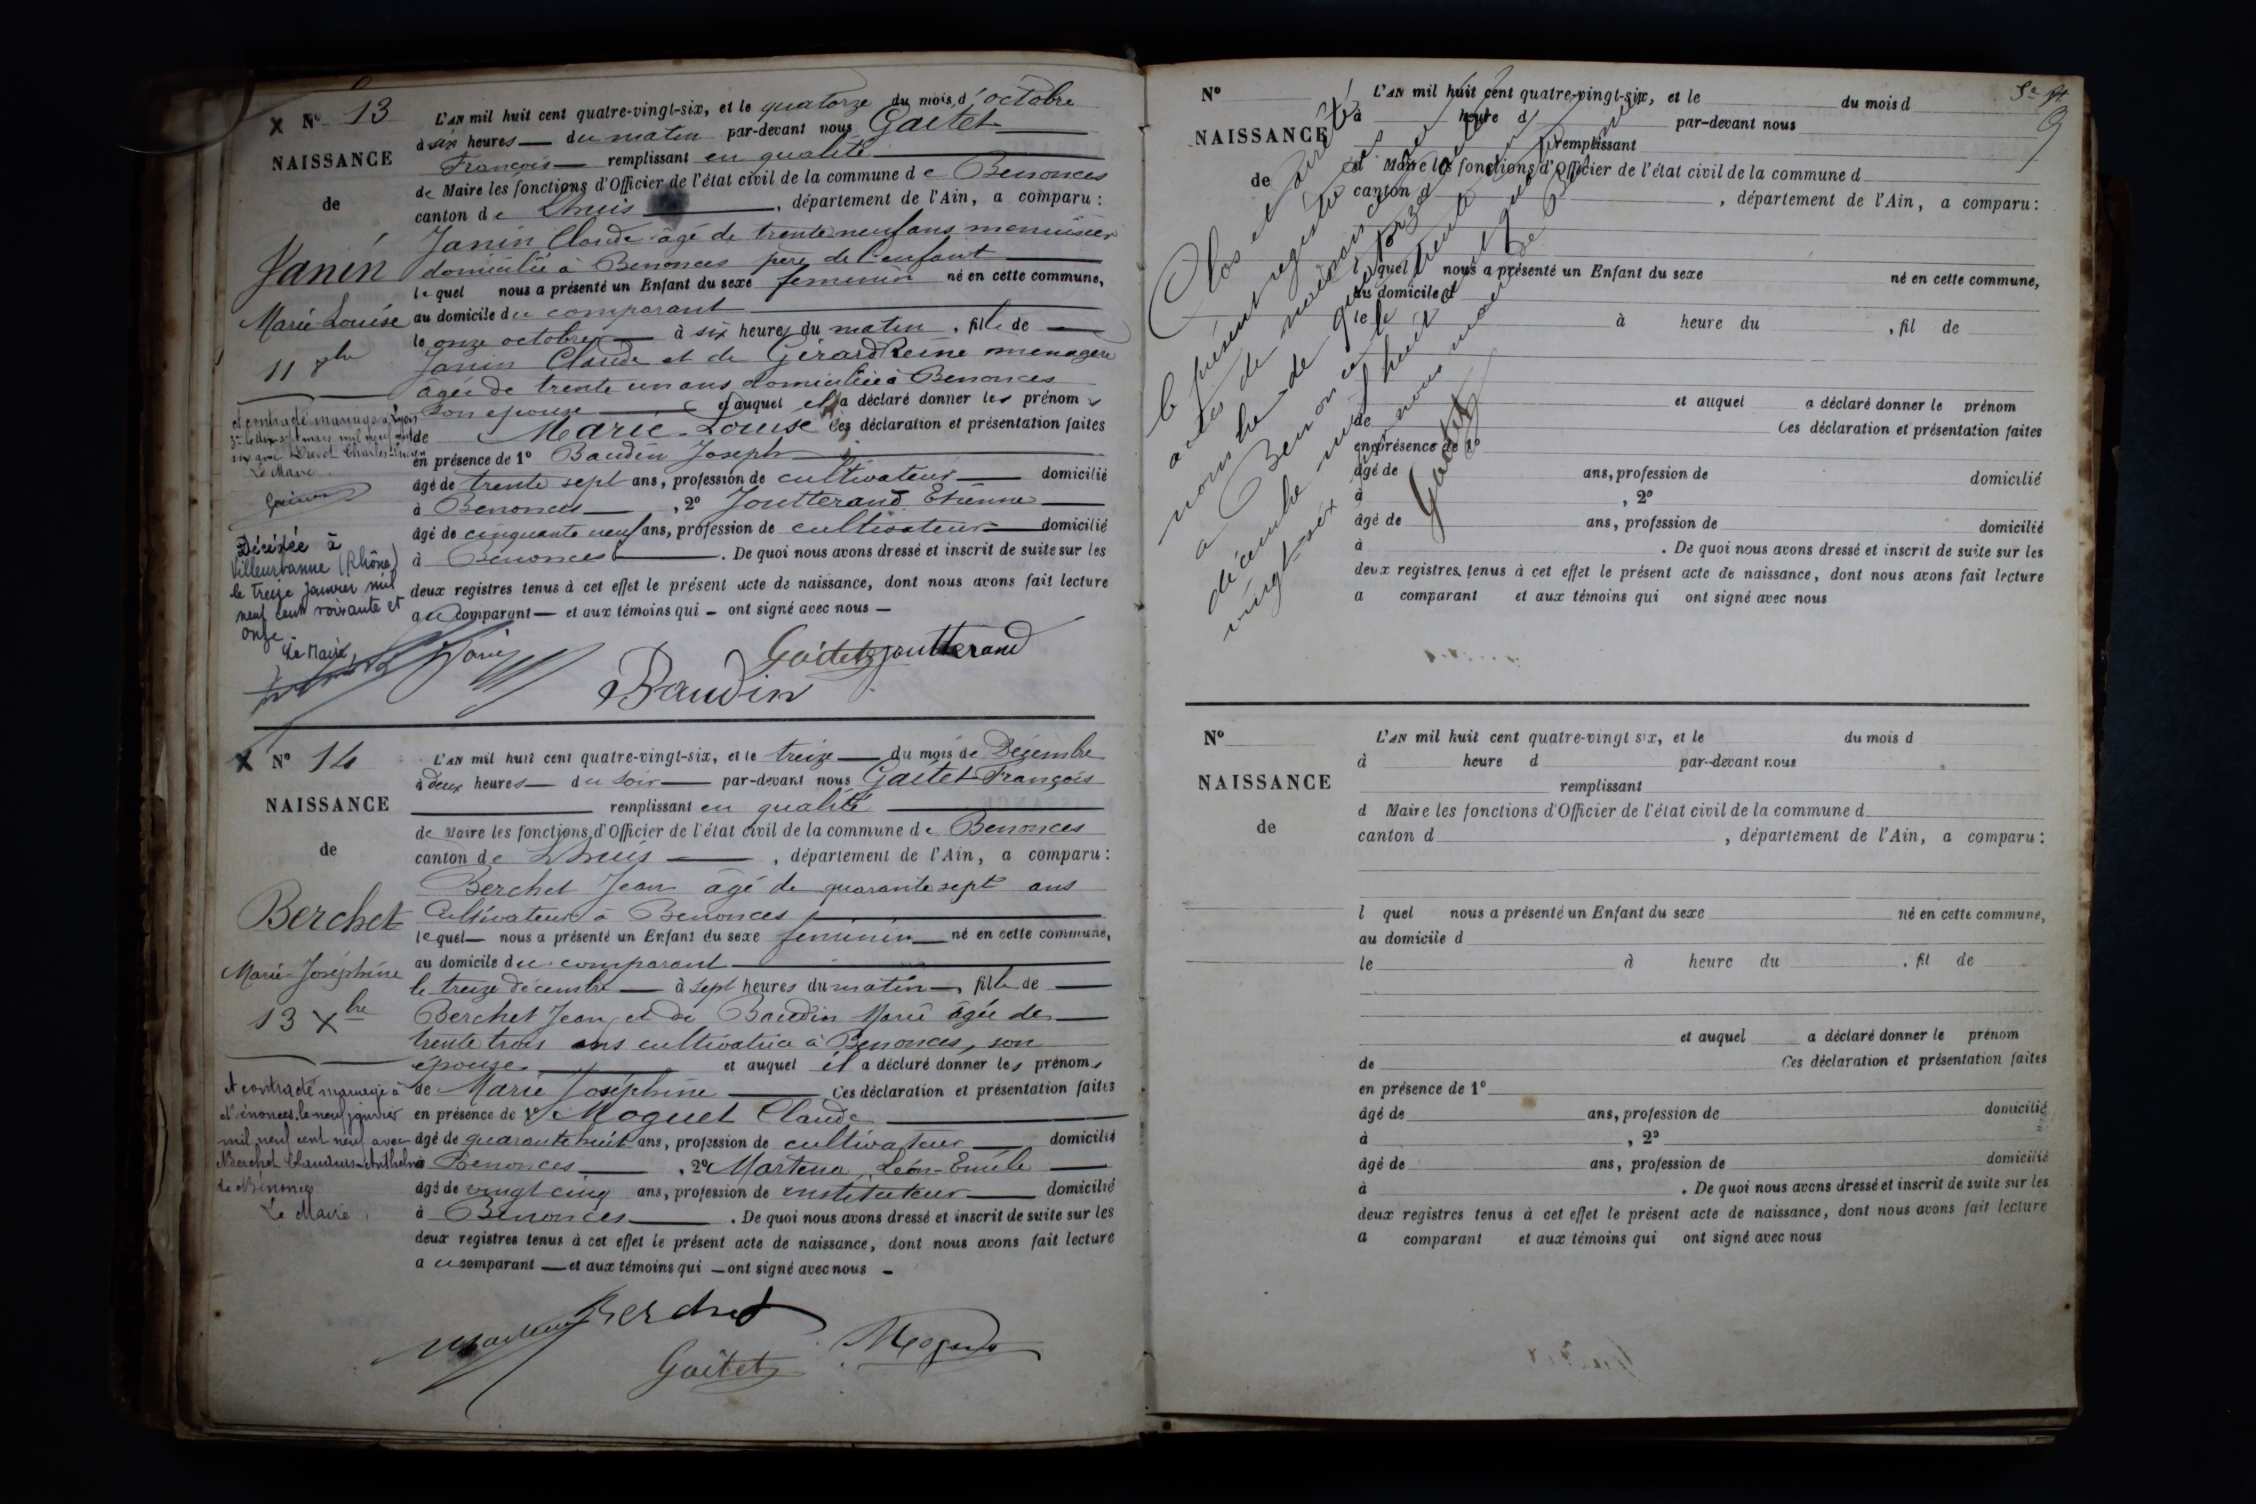 X N° 13
NAISSANCE
de
Janin
Marie Louise
11 8bre
et contracté mariage à Lyon
3e le dix sept mars mil neuf cent
six avec Charles
Le Maire
Décédée à
Villeurbanne (Rhône)
le treize Janvier mil
neuf cent soixante et
onze
Le Maire,
L'AN mil huit cent quatre-vingt-six, et le quatorze du mois d'octobre
à six heures du matin par-devant nous Gaitet
François remplissant en qualité
de Maire les fonctions d'Officier de l'état civil de la commune de Benonces
canton de Lhuis, département de l'Ain, a comparu:
Janin Claude âgé de trente neuf ans menuisier
domicilié à Benonces père de l'enfant
le quel nous a présenté un Enfant du sexe feminin né en cette commune,
au domicile du comparant
le onze octobre à six heures du matin, fille de
Janin Claude et de Girard Reine menagère
âgée de trente un ans domiciliée à Benonces
son épouse et auquel il a déclaré donner les prénoms
de Marie Louise Ces déclaration et présentation faites
en présence de 1° Baudin Joseph
âgé de trente sept ans, profession de cultivateur domicilié
à Benonces, 2° Joutterand Etienne
âgé de cinquante neuf ans, profession de cultivateur domicilié
à Benonces. De quoi nous avons dressé et inscrit de suite sur les
deux registres tenus à cet effet le présent acte de naissance, dont nous avons fait lecture
au comparant et aux témoins qui ont signé avec nous
Janin
Gaitet Joutterand
Baudin
X N° 14
NAISSANCE
de
Berchet
Marie-Joséphine
13 Xbre
A contracté mariage à
Bénonces, le neuf janvier
mil neuf cent neuf avec
Berchet Claudius-Anthelme
de Bénonces
Le Maire,
L'AN mil huit cent quatre-vingt-six, et le treize du mois de Décembre
à deux heures du soir par-devant nous Gaitet François
remplissant en qualité
de Maire les fonctions d'Officier de l'état civil de la commune de Benonces
canton de Lhuis, département de l'Ain, a comparu:
Berchet Jean âgé de quarante sept ans
Cultivateur à Benonces
lequel nous a présenté un Enfant du sexe feminin né en cette commune,
au domicile du comparant
le treize décembre à sept heures du matin, fille de
Berchet Jean et de Baudin Marie âgée de
trente trois ans cultivatrice à Benonces, son
épouse et auquel il a déclaré donner les prénoms
de Marie Joséphine Ces déclaration et présentation faites
en présence de 1° Moguet Claude
âgé de quarante huit ans, profession de cultivateur domicilié
à Benonces, 2° Martena Léon-Emile
âgé de vingt cinq ans, profession de instituteur domicilié
à Benonces. De quoi nous avons dressé et inscrit de suite sur les
deux registres tenus à cet effet le présent acte de naissance, dont nous avons fait lecture
au comparant et aux témoins qui ont signé avec nous
Berchet
Gaitet Moguet
9
N°
NAISSANCE
de
L'AN mil huit cent quatre-vingt-six, et le du mois d
à heure d par-devant nous
remplissant
d Maire les fonctions d'Officier de l'état civil de la commune d
canton d , département de l'Ain, a comparu:
l quel nous a présenté un Enfant du sexe né en cette commune,
au domicile d
le à heure du , fil de
et auquel a déclaré donner le prénom
de Ces déclaration et présentation faites
en présence de 1°
âgé de ans, profession de domicilié
à , 2°
âgé de ans, profession de domicilié
à . De quoi nous avons dressé et inscrit de suite sur les
deux registres tenus à cet effet le présent acte de naissance, dont nous avons fait lecture
a comparant et aux témoins qui ont signé avec nous
Clos et arrêté
le présent registre des
actes de naissance au
nombre de quatorze
a Benonces le trente un
décembre mil huit cent quatre
vingt-six par nous maire de Benonces
Gaitet
N°
NAISSANCE
de
L'AN mil huit cent quatre-vingt six, et le du mois d
à heure d par-devant nous
remplissant
d Maire les fonctions d'Officier de l'état civil de la commune d
canton d , département de l'Ain, a comparu:
l quel nous a présenté un Enfant du sexe né en cette commune,
au domicile d
le à heure du , fil de
et auquel a déclaré donner le prénom
de Ces déclaration et présentation faites
en présence de 1°
âgé de ans, profession de domicilié
à , 2°
âgé de ans, profession de domicilié
à . De quoi nous avons dressé et inscrit de suite sur les
deux registres tenus à cet effet le présent acte de naissance, dont nous avons fait lecture
a comparant et aux témoins qui ont signé avec nous